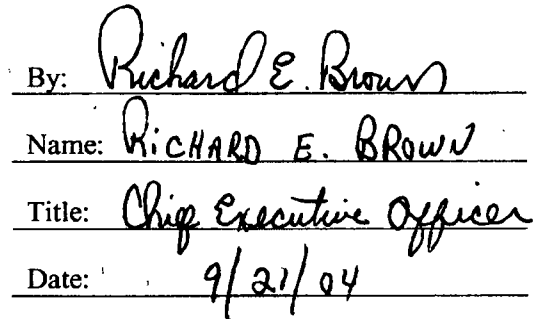 By: Richard E. Brown
Name: RiCHARD E. BROWN
Title: Chief Executive Officer
Date: 9/21/04